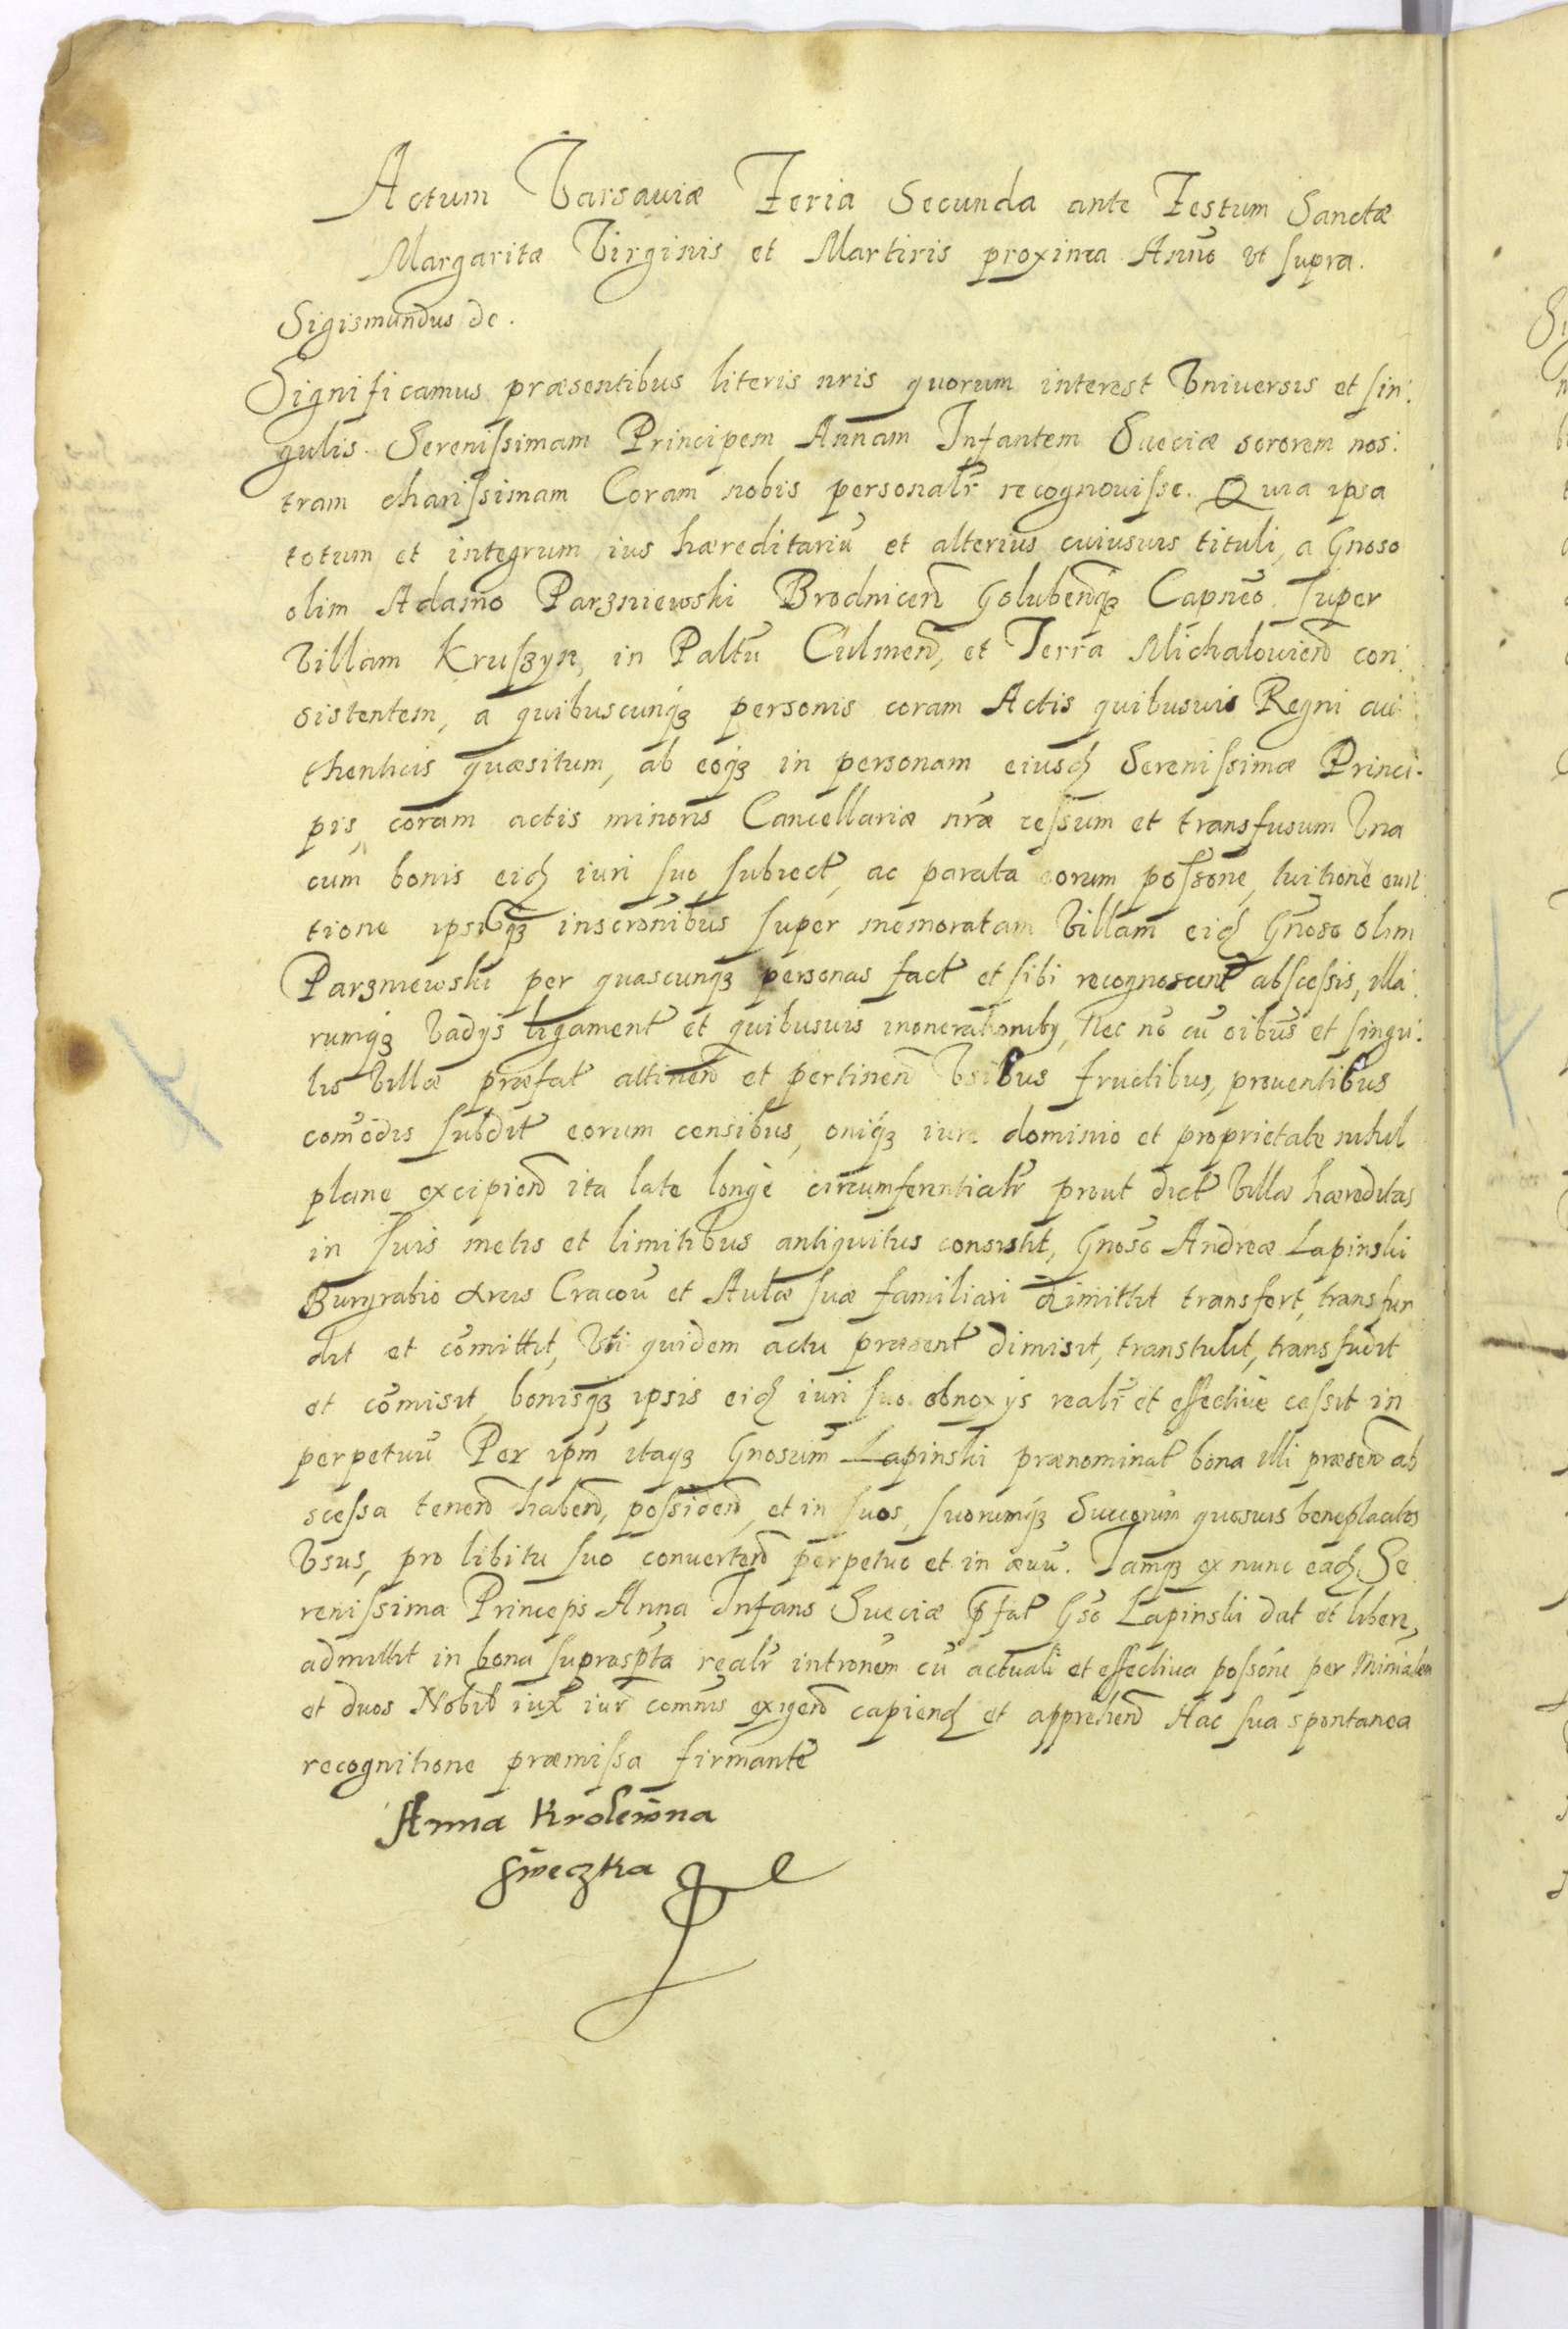 Actum Varsaviæ Feria Secunda ante Festum Sanctæ
Margaritæ Virginis et Martiris proxima Anno ut supra.
Sigismundus dc.
Significamus præsentibus literis nris quorum interest Universis et sin:
gulis. Serenissimam Principem Annam Infantem Sueciæ sororem nos:
tram charissimam Coram nobis personalr recognovisse. Quia ipsa
totum et integrum ius hæreditariu et alterius cuiusvis tituli, a Gnoso
olim Adamo Parzniewski Brodnicen Golubenqz Capneo super
Villam Kruszyn, in Paltu Culmen, et Terra Michalovien con:
sistentem, a quibuscunqz personis coram Actis quibusvis Regni au:
thenticis quæsitum, ab eoqz in personam eiusd Serenissimæ Princi:
pis, coram actis minoris Cancellariæ nræ cessum et transfusum Una
cum bonis eid iuri suo subiect, ac parata eorum possone, tuitione evic
tione ipsiqz inscronibus super memoratam Villam eid Gnoso olim
Parzniewski per quascunqz personas fact et sibi recognoscent abscessis, illa:
rumqz vadys ligament et quibusvis inonerationiby, Nec no cu oibus et singu:
lis Villæ præfat attinen et pertinen Usibus fructibus, proventibus
comodis subdit eorum censibus, oniqz iure dominio et proprietate nihil
plane excipien ita late longe circumferentialr prout dict Villæ hæreditas
in suis metis et limitibus antiquitus consistit, Gnoso Andreæ Lapinski
Burgrabio Arcis Cracov et Aulæ suæ familiari dimittit transfert, transfun
dit et comittit, Uti quidem actu præsent dimisit, transtulit, transfudit
et comisit, bonisqz ipsis eid iuri suo obnoxys realr et effective cessit in
perpetuu Per ipm itaqz Gnosum Lapinski prænominat bona illi præsen ab
scessa tenen haben, possiden, et in suos, suorumqz Succorum quosvis beneplacitos
Usus, pro libitu suo converten perpetuo et in ævu. Iamqz ex nunc ead Se
renissima Princeps Anna Infans Sueciæ pfat Gso Lapinski dat et libere,
admittit in bona suprascpta realr intronem cu actuali et effectiva possone per Minialem
et duos Nobil iux iur comnis exigen capiend et apprehen Hac sua spontanea
recognitione præmissa firmante
Anna Krolewna
Sweczka